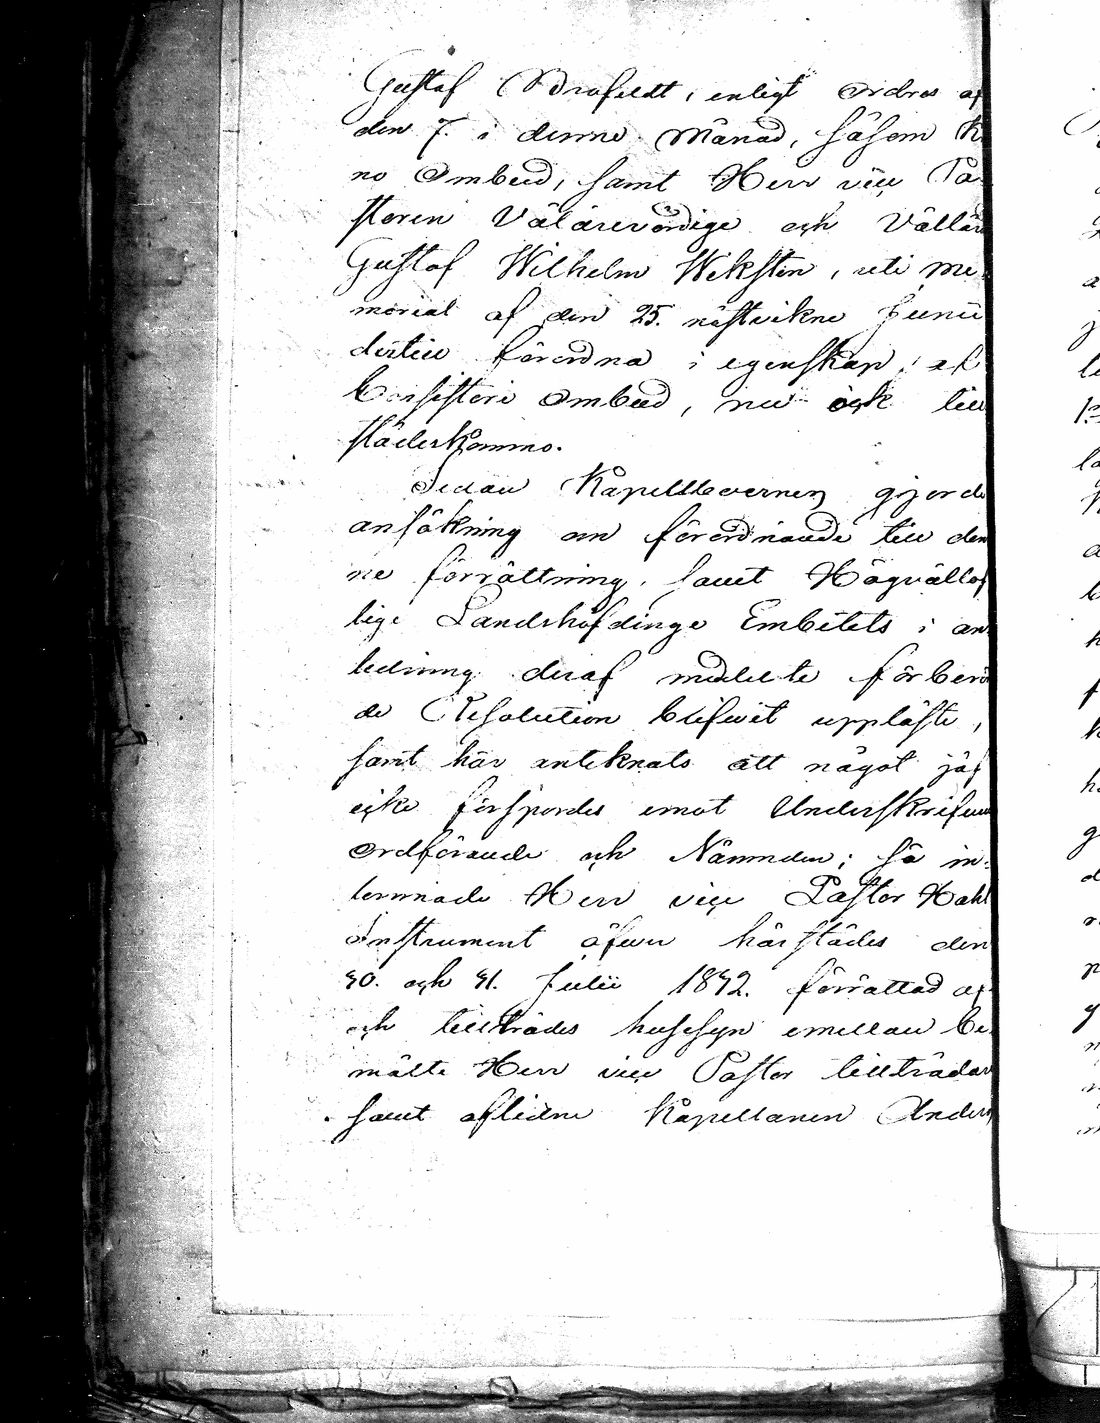 Gustaf Brofeldt, enligt ordres af
den 7. i denne Månad, såsom K
no Ombud, samt Herr vice Pa-
storen Välärevördige och Vällär
Gustaf Wilhelm Weksten, uti Me-
morial af den 25. nästvikne Junii
dertill förordna i egenskap af
Consistorii Ombud, nu ock till
städeskommo.
Sedan Kapellboernes gjorde
ansökning om förordnande till den
ne förrättning, samt Högvällof
lige Landshöfdinge Embetets i an-
ledning deraf meddelte förberö
de Resolution blifwit uppläste,
samt här anteknats att något jäf
icke förspordes emot Underskrifwen
Ordförande och Nämnden; så in-
lemnade Herr vice Pastor
Instrument öfwer härstädes den
30. och 31. Julii 1832. förrättad af
och tillträdes husesyn emellan be-
mälte Herr vice Pastor tillträdar
samt aflidne Kapellanen Anders